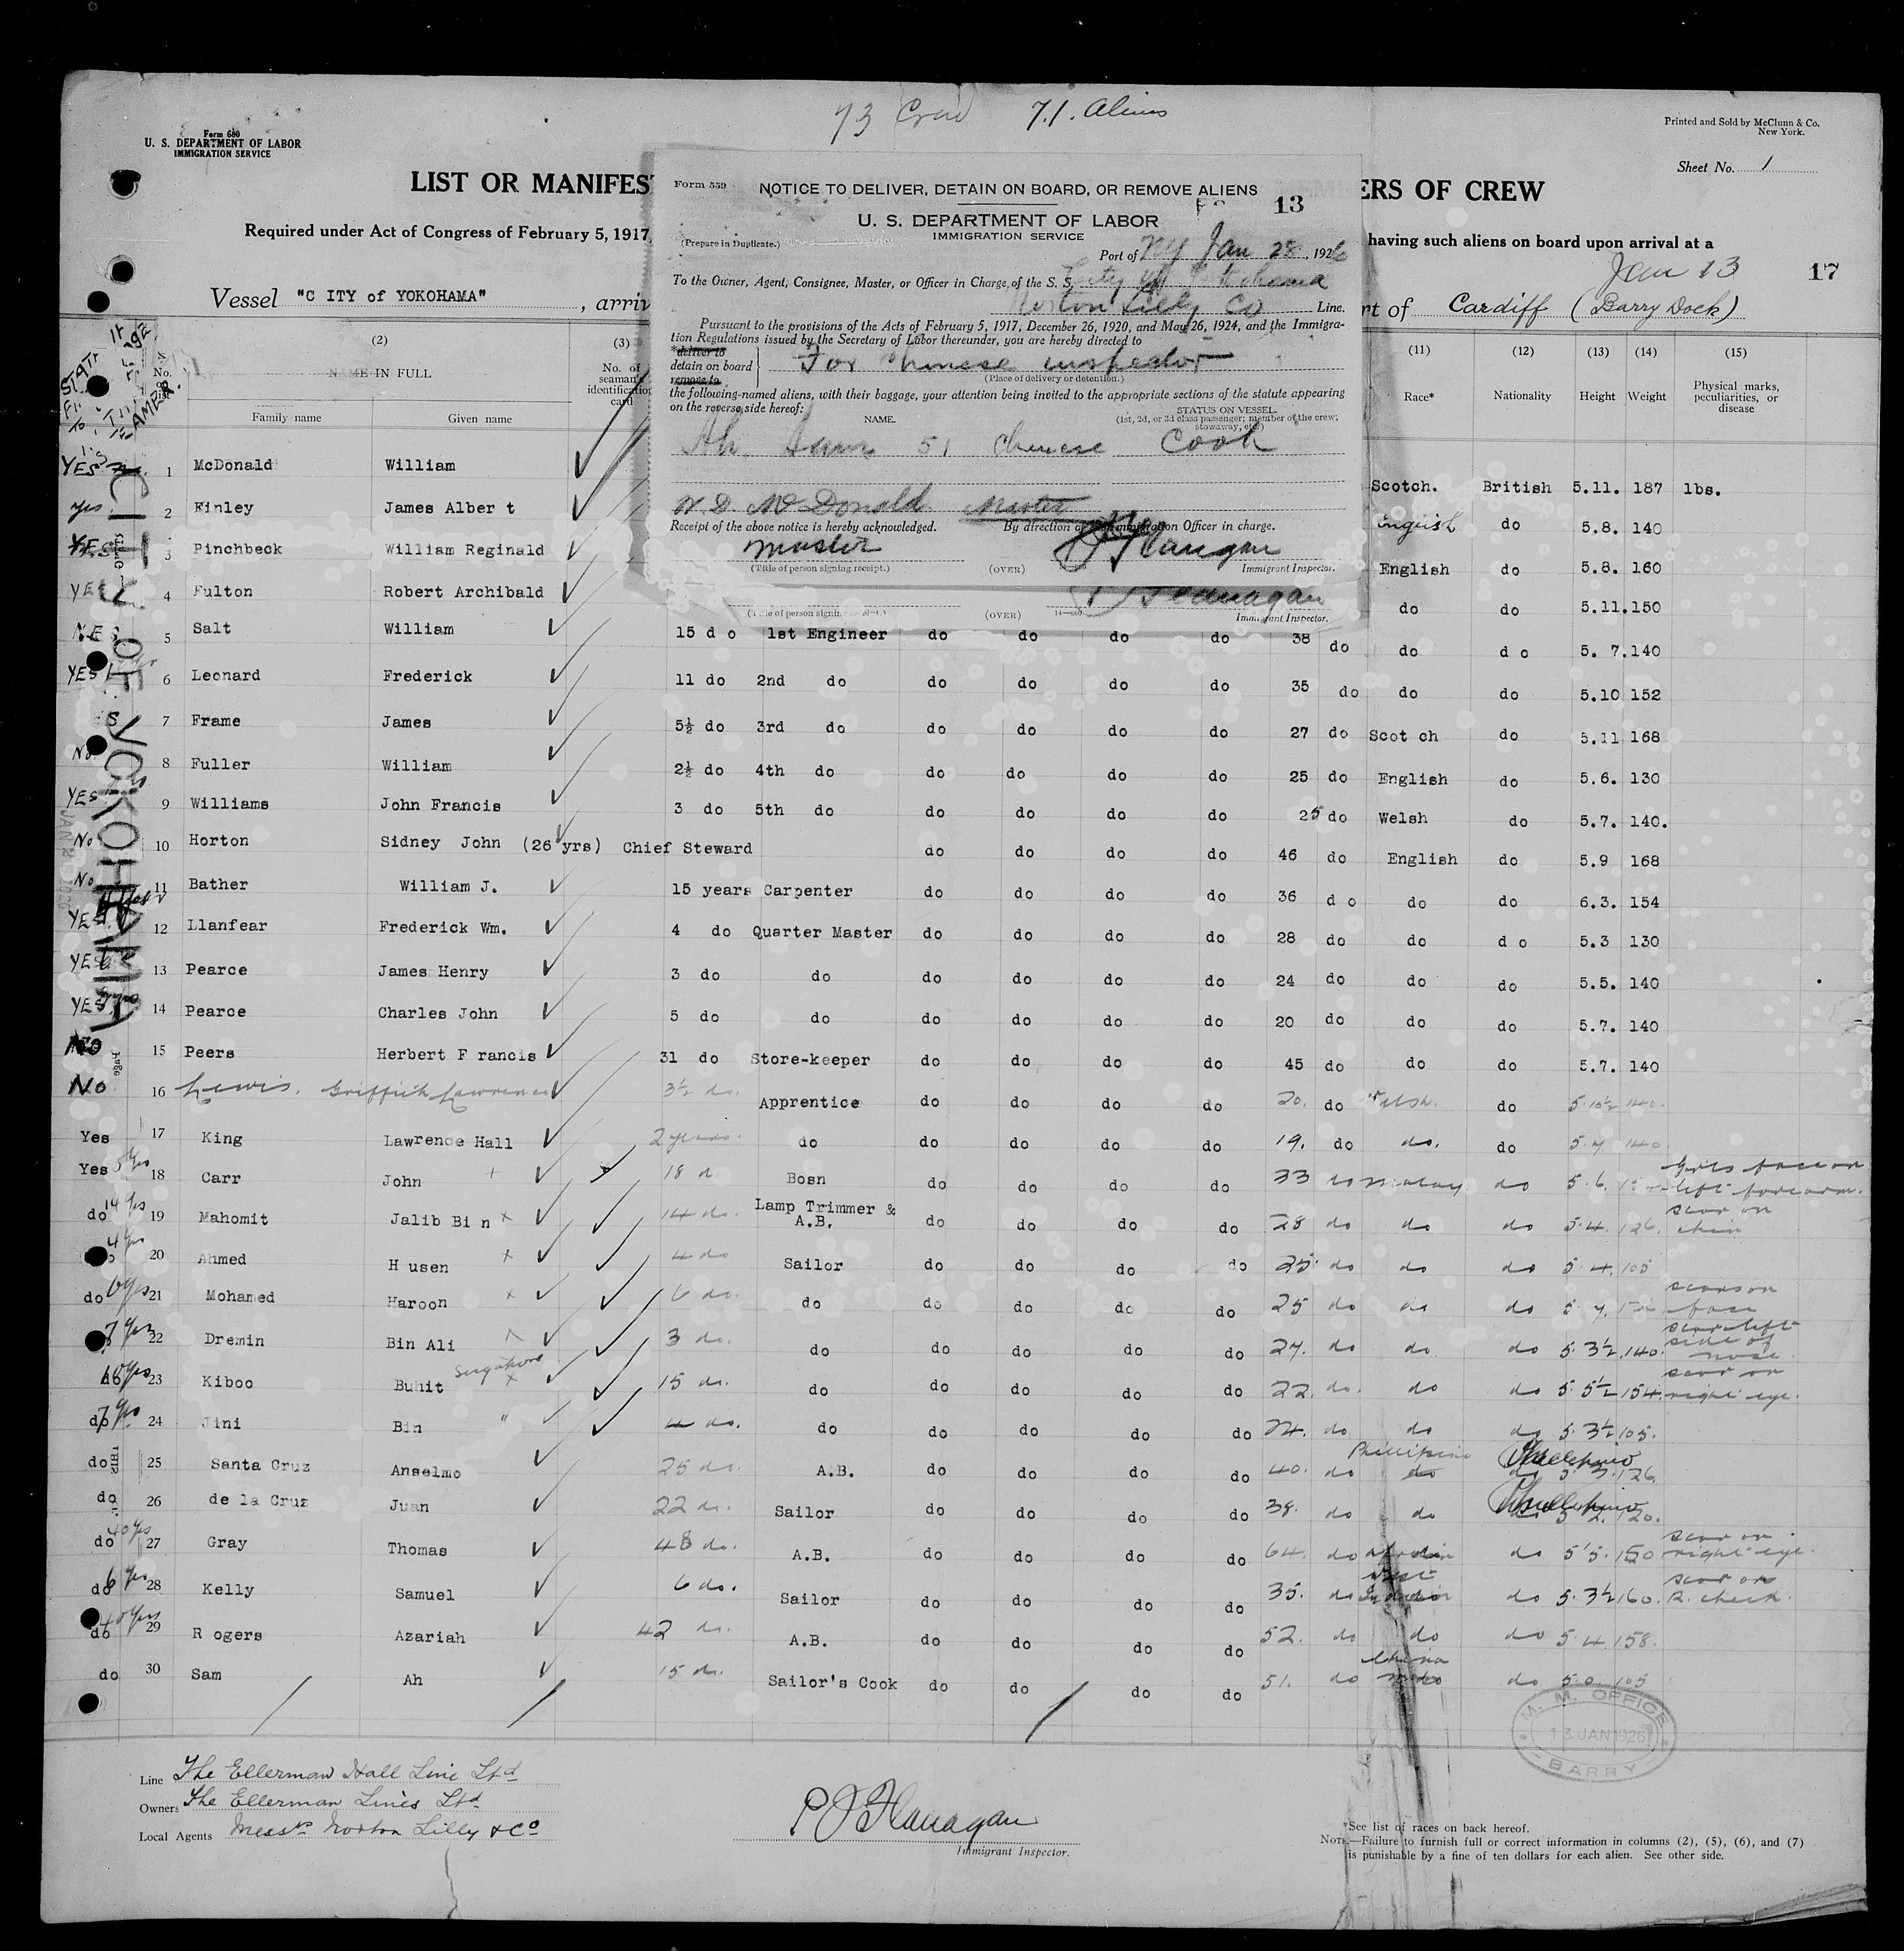 73 Crew 7.1. Aliens
Form 680
U. S. DEPARTMENT OF LABOR
IMMIGRATION SERVICE
Printed and Sold by McClunn & Co.
New York.
Sheet No. 1
LIST OR MANIFES
ERS OF CREW
Required under Act of Congress of February 5, 1917,
having such aliens on board upon arrival at a
Jan 13
17
Vessel "C ITY of YOKOHAMA" , arriv
rt of Cardiff (Barry Dock)
Form 559
NOTICE TO DELIVER, DETAIN ON BOARD, OR REMOVE ALIENS
13
U. S. DEPARTMENT OF LABOR
IMMIGRATION SERVICE
(Prepare in Duplicate.)
Port of NY Jan 28, 1926
To the Owner, Agent, Consignee, Master, or Officer in Charge, of the S. S. City of Yokohama
Norton Lilly Co Line.
Pursuant to the provisions of the Acts of February 5, 1917, December 26, 1920, and May 26, 1924, and the Immigra-
tion Regulations issued by the Secretary of Labor thereunder, you are hereby directed to
*deliver to
detain on board
remove to
For Chinese inspector
(Place of delivery or detention.)
the following-named aliens, with their baggage, your attention being invited to the appropriate sections of the statute appearing
on the reverse side hereof:
NAME.
STATUS ON VESSEL.
(1st, 2d, or 3d class passenger; member of the crew;
stowaway, etc.)
Ah Sam 51 Chinese Cook
W. D. McDonald. Master
Receipt of the above notice is hereby acknowledged.
By direction of the Immigration Officer in charge.
Master
P J Flanagan
(Title of person signing receipt.)
(OVER)
Immigrant Inspector.
Flanagan
(OVER)
Immigrant Inspector.
CITY OF YOKOHAMA
No.
(2)
NAME IN FULL
Family name Given name
(3)
No. of
seaman's
identification
card
(11)
Race*
(12)
Nationality
(13)
Height
(14)
Weight
(15)
Physical marks,
peculiarities, or
disease
YES 1 McDonald William Scotch. British 5.11. 187 lbs.
yes 2 Finley James Alber t English do 5.8. 140
YES 3 Pinchbeck William Reginald English do 5.8. 160
YES 4 Fulton Robert Archibald do do 5.11.150
5 Salt William 15 d o 1st Engineer do do do do 38 do do d o 5. 7.140
YES 6 Leonard Frederick 11 do 2nd do do do do do 35 do do do 5.10 152
7 Frame James 5½ do 3rd do do do do do 27 do Scot ch do 5.11 168
No 8 Fuller William 2½ do 4th do do do do do 25 do English do 5.6. 130
YES 9 Williams John Francis 3 do 5th do do do do do 25 do Welsh do 5.7. 140.
No 10 Horton Sidney John (26 yrs) Chief Steward do do do do 46 do English do 5.9 168
No 11 Bather William J. 15 years Carpenter do do do do 36 d o do do 6.3. 154
YES 12 Llanfear Frederick Wm. 4 do Quarter Master do do do do 28 do do d o 5.3 130
YES 13 Pearce James Henry 3 do do do do do do 24 do do do 5.5. 140
YES 14 Pearce Charles John 5 do do do do do do 20 do do do 5.7. 140
NO 15 Peers Herbert F rancis 31 do Store-keeper do do do do 45 do do do 5.7. 140
No 16 Lewis. Griffith Lawrence 3½ do. Apprentice do do do do 20. do Welsh. do 5.10½ 140.
Yes 17 King Lawrence Hall 2 years. do do do do do 19. do do. do 5.7 140
Yes 5 yrs 18 Carr John 18 d Bosn do do do do 33 do Malay do 5.6. Girls face on
left forearm.
do 14 yrs 19 Mahomit Jalib Bi n 14 do. Lamp Trimmer &
A.B. do do do do 28 do do do 5.4. 126. scar on
chin
4 yrs 20 Ahmed H usen 4 do Sailor do do do do 25. do do do 5.4. 105
do 6 yrs 21 Mohamed Haroon 6 do. do do do do do 25 do do do 5.7. scars on
face
7 yrs 22 Dremin Bin Ali 3 do. do do do do do 24. do do do 5.3½ 140. scar left
side of
nose
do 23 Kiboo Buhit Singapore 15 do. do do do do do 22. do. do do 5.5½ 154. scar on
right eye.
do 7 yrs 24 Jini Bin " 4 do. do do do do do 24. do do do 5.3½ 105.
do 25 Santa Cruz Anselmo 25 do. A.B. do do do do 40. do Phillipino do do 5.3. 126.
do 26 de la Cruz Juan 22 do. Sailor do do do do 38. do do do 5.2. 120.
do 40 yrs 27 Gray Thomas 48 do. A.B. do do do do 64. do do 5'5. 150 scar on
right eye.
do 6 yrs 28 Kelly Samuel 6 do. Sailor do do do do 35. do West Indian do 5.3½ 160. scar on
R. cheek.
do 40 yrs 29 R ogers Azariah 42 do. A.B. do do do do 52. do do do 5.4 158.
do 30 Sam Ah 15 do. Sailor's Cook do do do do 51. do China do 5.0. 105
M. M. OFFICE
13 JAN 1926
BARRY
Line The Ellerman Hall Line Ltd
Owners The Ellerman Lines Ltd
Local Agents Messrs Norton Lilly & Co
P J Flanagan
Immigrant Inspector.
*See list of races on back hereof.
NOTE.—Failure to furnish full or correct information in columns (2), (5), (6), and (7)
is punishable by a fine of ten dollars for each alien. See other side.